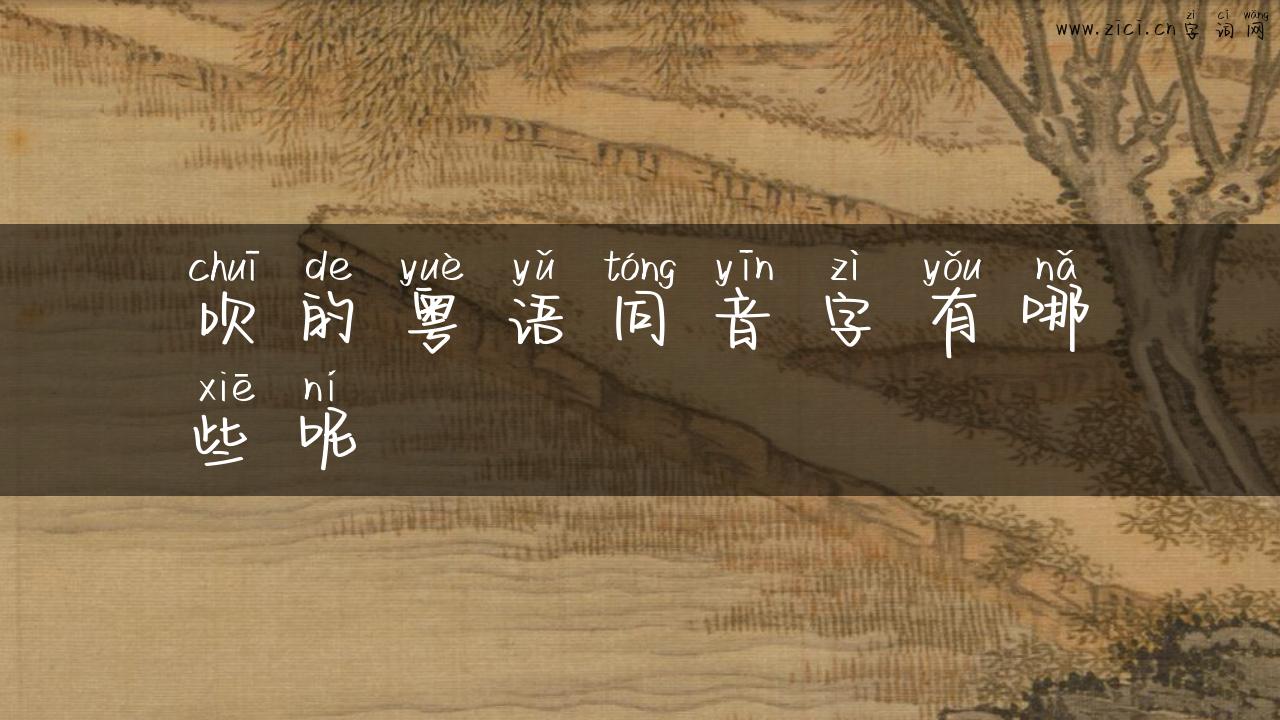 zì cí wǎng
www.zici.cn字词网
chuī de yuè yǔ tóng yīn zì yǒu nǎ
吹的粤语同音字有哪
xiē ní
些呢